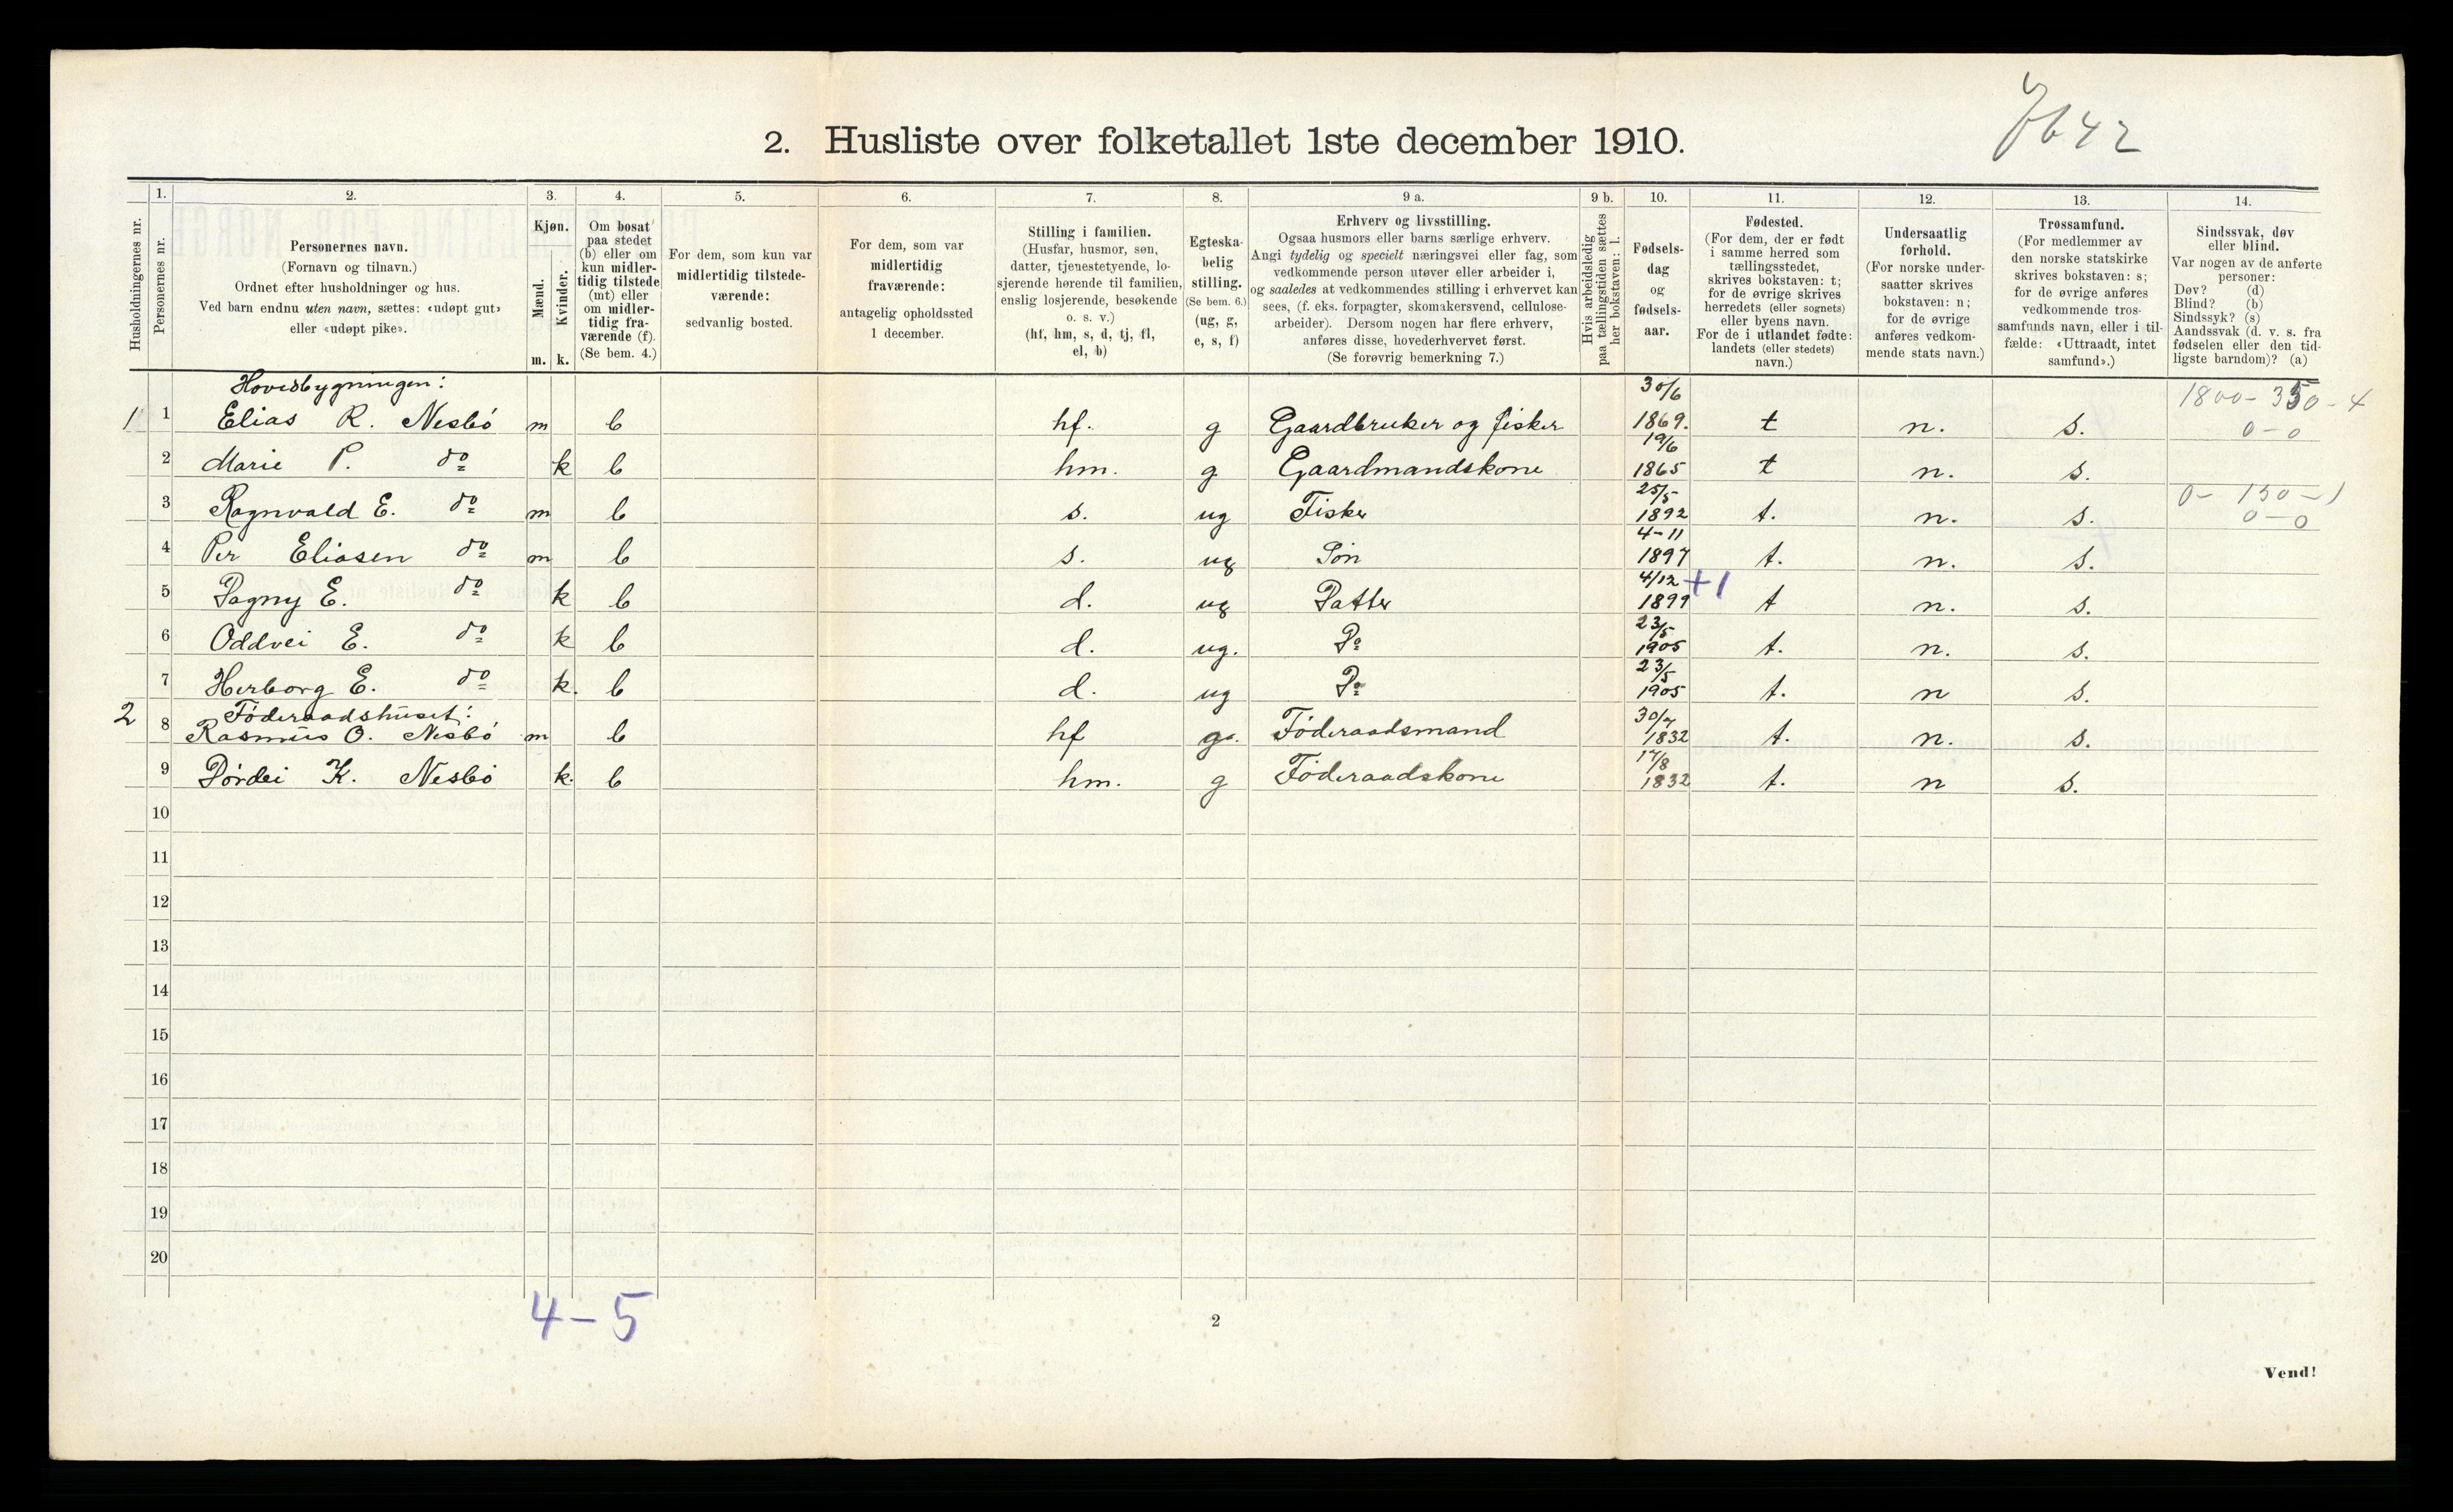 2. Husliste over folketallet 1ste december 1910.
1. 2. 3. 4. 5. 6. 7. 8. 9 a. 9 b. 10. 11. 12. 13. 14.
Husholdningernes nr.
Personernes nr.
Personernes navn.
(Fornavn og tilnavn.)
Ordnet efter husholdninger og hus.
Ved barn endnu uten navn, sættes: «udøpt gut»
eller «udøpt pike».
Kjøn.
Mænd.
Kvinder.
m. k.
Om bosat
paa stedet
(b) eller om
kun midler-
tidig tilstede
(mt) eller
om midler-
tidig fra-
værende (f).
(Se bem. 4.)
For dem, som kun var
midlertidig tilstede-
værende:
sedvanlig bosted.
For dem, som var
midlertidig
fraværende:
antagelig opholdssted
1 december.
Stilling i familien.
(Husfar, husmor, søn,
datter, tjenestetyende, lo-
sjerende hørende til familien,
enslig losjerende, besøkende
o. s. v.)
(hf, hm, s, d, tj, fl,
el, b)
Egteska-
belig
stilling.
(Se bem. 6.)
(ug, g,
e, s, f)
Erhverv og livsstilling.
Ogsaa husmors eller barns særlige erhverv.
Angi tydelig og specielt næringsvei eller fag, som
vedkommende person utøver eller arbeider i,
og saaledes at vedkommendes stilling i erhvervet kan
sees, (f. eks. forpagter, skomakersvend, cellulose-
arbeider). Dersom nogen har flere erhverv,
anføres disse, hovederhvervet først.
(Se forøvrig bemerkning 7.)
Hvis arbeidsledig
paa tællingstiden sættes
her bokstaven: l.
Fødsels-
dag
og
fødsels-
aar.
Fødested.
(For dem, der er født
i samme herred som
tællingsstedet,
skrives bokstaven: t;
for de øvrige skrives
herredets (eller sognets)
eller byens navn.
For de i utlandet fødte:
landets (eller stedets)
navn.)
Undersaatlig
forhold.
(For norske under-
saatter skrives
bokstaven: n;
for de øvrige
anføres vedkom-
mende stats navn.)
Trossamfund.
(For medlemmer av
den norske statskirke
skrives bokstaven: s;
for de øvrige anføres
vedkommende tros-
samfunds navn, eller i til-
fælde: «Uttraadt, intet
samfund».)
Sindssvak, døv
eller blind.
Var nogen av de anførte
personer:
Døv? (d)
Blind? (b)
Sindssyk? (s)
Aandssvak (d. v. s. fra
fødselen eller den tid-
ligste barndom)? (a)
Hovedbygningen:
1 1 Elias R. Nesbö m b hf. g Gaardbruker og fisker 30/6 1869. t n. s. 1800-350-4 0-0
2 Marie P. do k b hm. g Gaardmandskone 19/6 1865 t n. s.
3 Ragnvald E. do m b s. ug Fisker 25/5 1892 t. n. s. 0-150-1 0-0
4 Per Eliasen do m b s. ug Sön 4-11 1897 t. n. s.
5 Dagny E. do k b d. ug Datter 4/12 1899 +1 t n. s.
6 Oddvei E. do k b d. ug. Do 23/5 1905 t. n. s.
7 Herborg E. do k. b d. ug Do 23/5 1905 t. n s.
Föderaadshuset:
2 8 Rasmus O. Nesbö m b hf g. Föderaadsmand 30/7 1832 t. n. s.
9 Dördei K. Nesbö k. b hm. g Föderaadskone 17/8 1832 t. n s.
10
11
12
13
14
15
16
17
18
19
20
4-5
2
Vend!